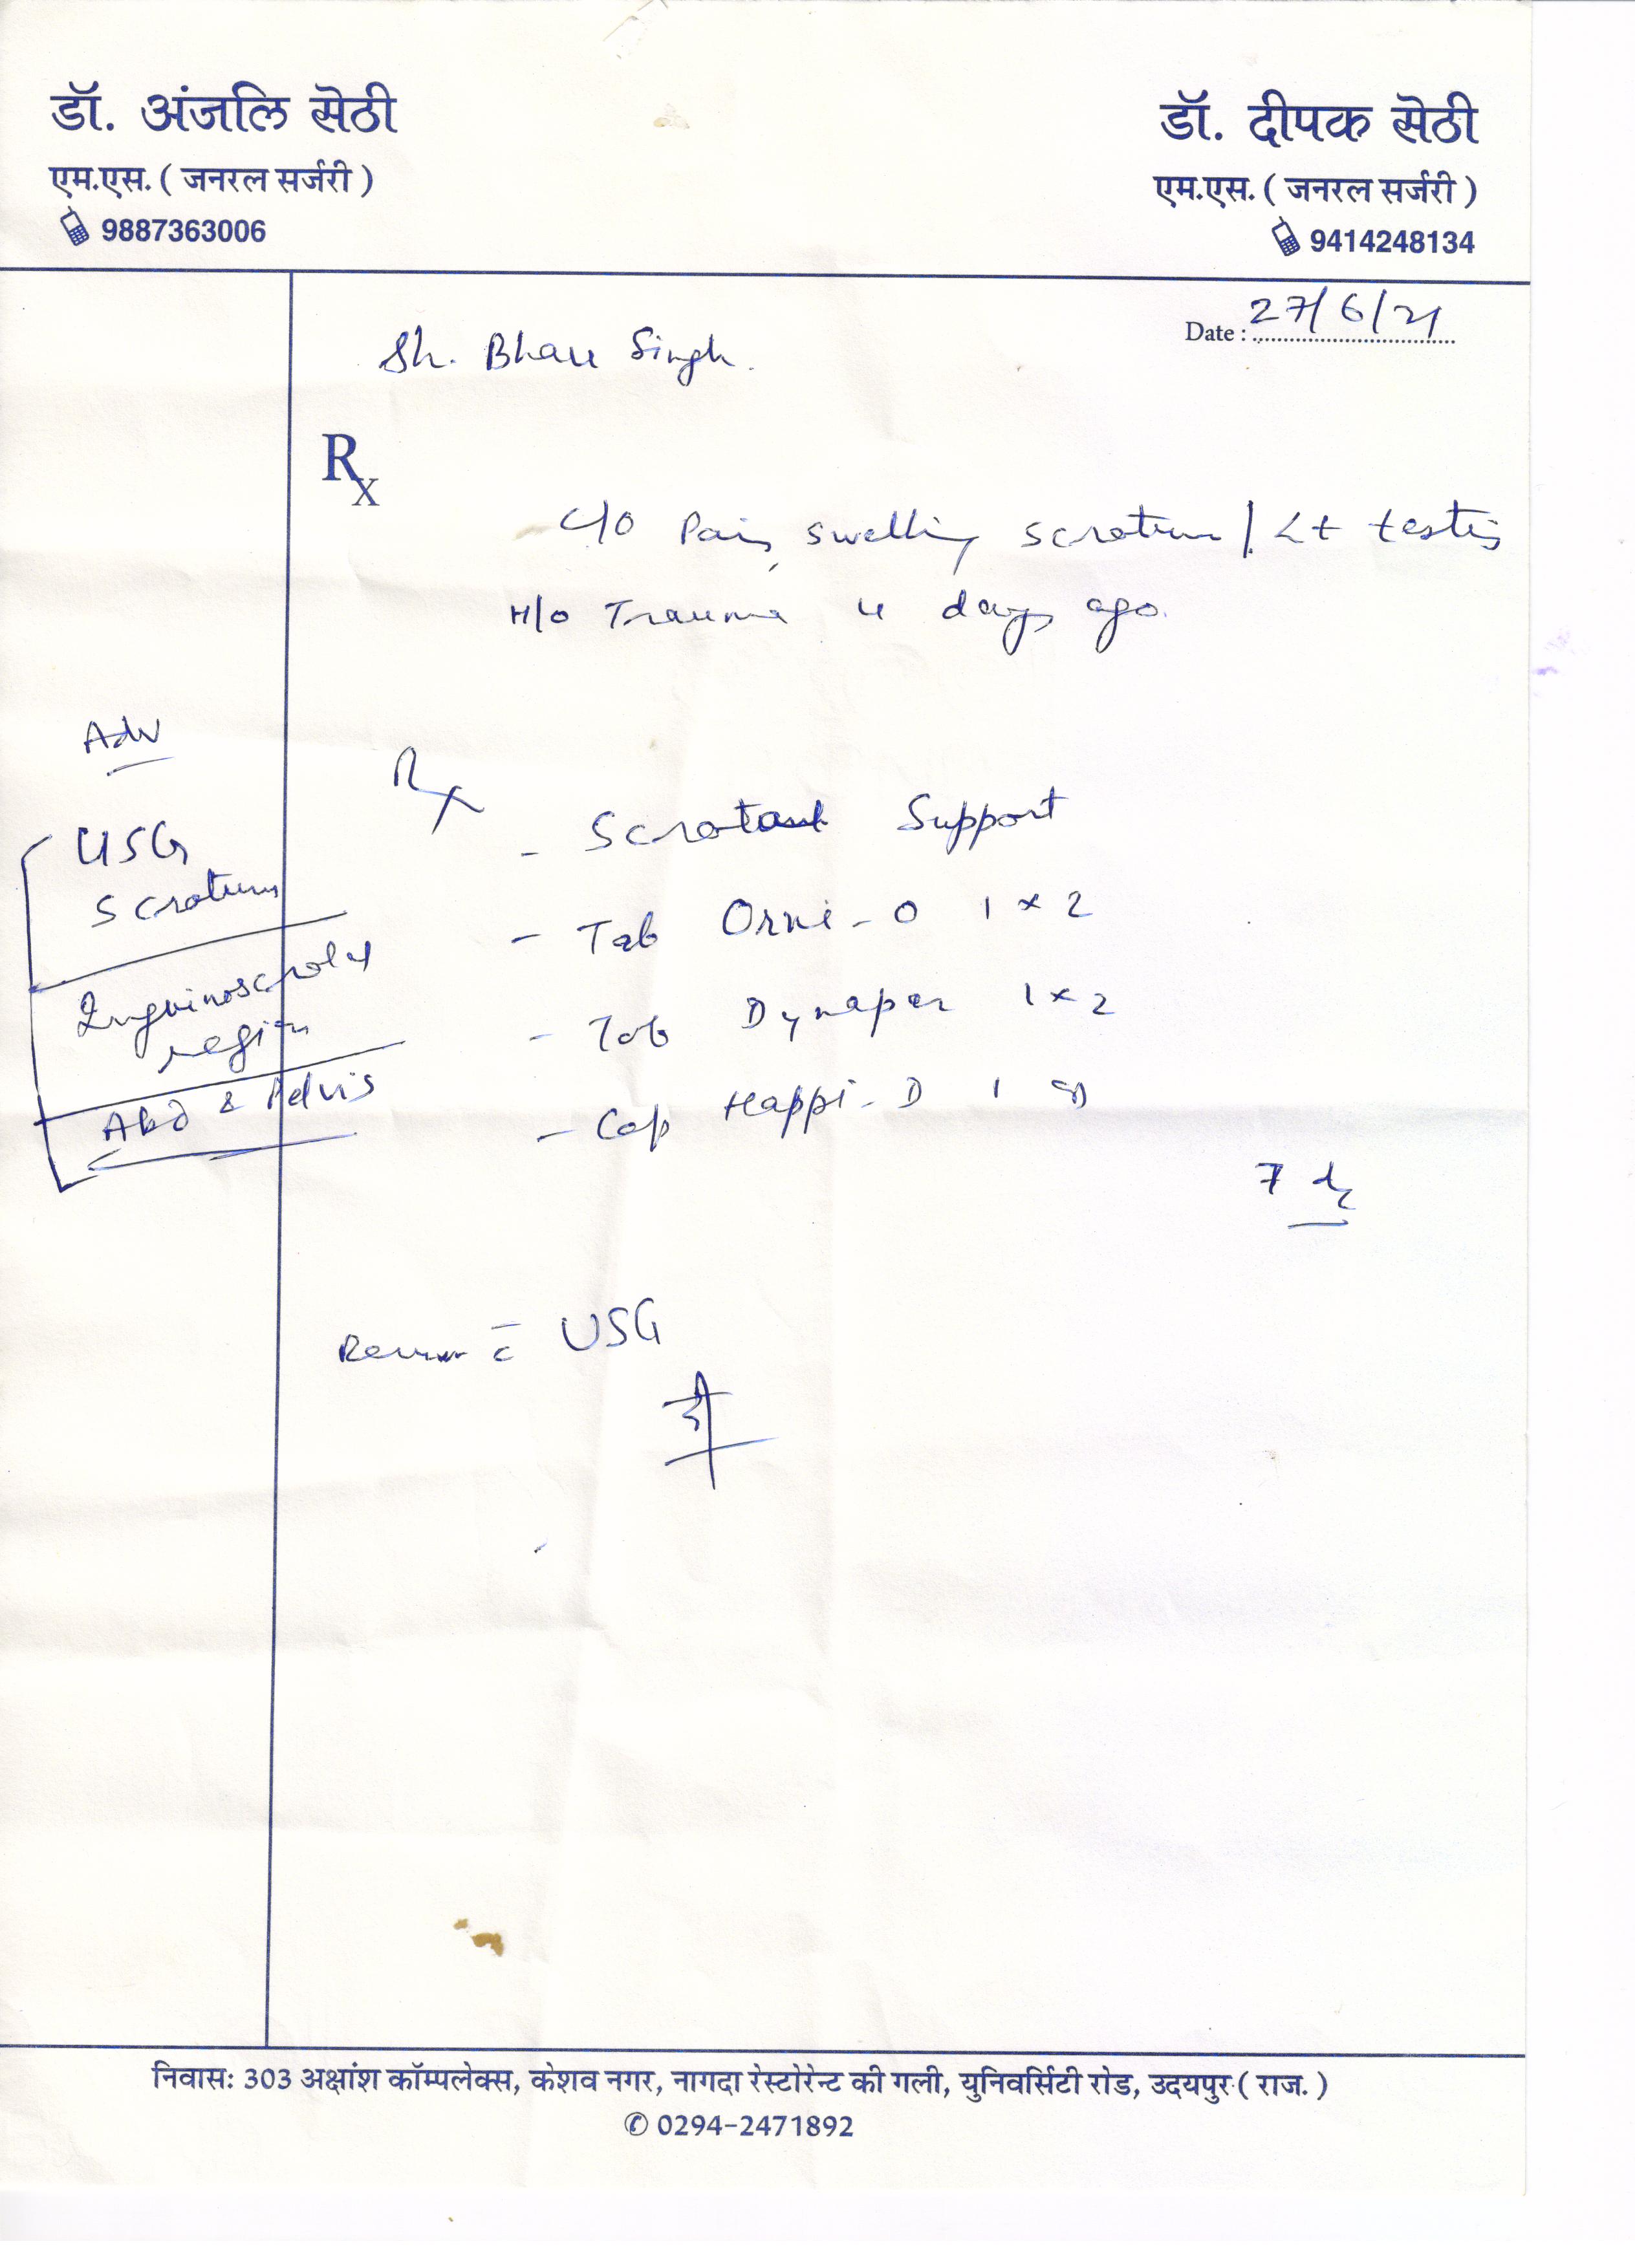 डॉ. अंजलि सेठी
एम.एस. ( जनरल सर्जरी )
9887363006
डॉ. दीपक सेठी
एम.एस. ( जनरल सर्जरी )
9414248134
Date : 27/6/21
Sh. Singh.
Rx
C/O Pain, swelling scrotum / Lt testis
H/O Trauma 4 days ago.
Adv
USG
Scrotum
Inguinoscrotal
region
Abd & Pelvis
Rx
- Scrotal Support
- Tab Orni-O 1 x 2
- Tab Dynapar 1 x 2
- Cap Happi-D 1 OD
7 d
Review c̄ USG
निवासः 303 अक्षांश कॉम्पलेक्स, केशव नगर, नागदा रेस्टोरेन्ट की गली, युनिवर्सिटी रोड, उदयपुर ( राज. )
✆ 0294-2471892